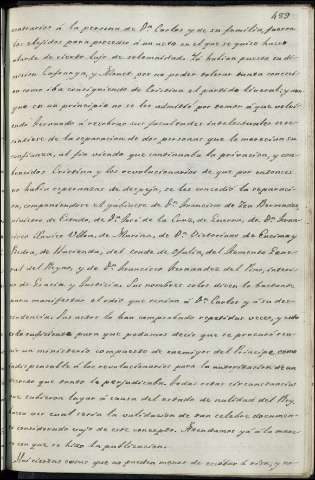 489
contrarios á la persona de Dn Carlos y de su familia, fueron
los elejidos para proceder á un acto en el que se quiso hacer
alarde de cierto lujo de solemnidad. Ya habian puesto su di-
mision Cafranga, y Monet por no poder tolerar tanta concesi-
on como iba consiguiendo de Cristina el partido liberal; y aun
que en un principio no se les admitió por temor á que volvi-
endo Fernando á recobrar sus facultades intelectuales se re-
sintiese de la separacion de dos personas que le merecian su
confianza, al fin viendo que continuaba la privacion, y con-
vencidos Cristina y los revolucionarios de que por entonces
no habia esperanzas de despejo, se les concedió la separaci-
on, componiendose el gabinete de Dn Francisco de Zea Bermudez,
ministro de Estado, de Dn José de la Cruz, de Guerra, de Dn Fran-
cisco Xavier Ulloa, de Marina, de Dn Victoriano de Encima y
Piedra, de Hacienda, del conde de Ofalia, del Fomento Gene-
ral del Reyno, y de Dn Francisco Fernandez del Pino, interi-
no de Gracia y Justicia. Sus nombres solos dicen lo bastante
para manifestar el odio que tenian á Dn Carlos y á su des-
cendencia: sus actos lo han comprobado repetidas veces, y esto
es lo suficiente para que podamos decir que se procuró reu-
nir un ministerio compuesto de enemigos del Principe, como
indispensable á los revolucionarios para la autorizacion de un
acuerdo que tanto le perjudicaba. Todas estas circunstancias
que tubieron lugar á causa del estado de nulidad del Rey,
hacen ver cual seria la validacion de tan celebre documen-
to considerado bajo de este concepto. Atendamos ya á la mane-
ra con que se hizo la publicacion.
Hai ciertas cosas que no pueden menos de escitar á risa, y no